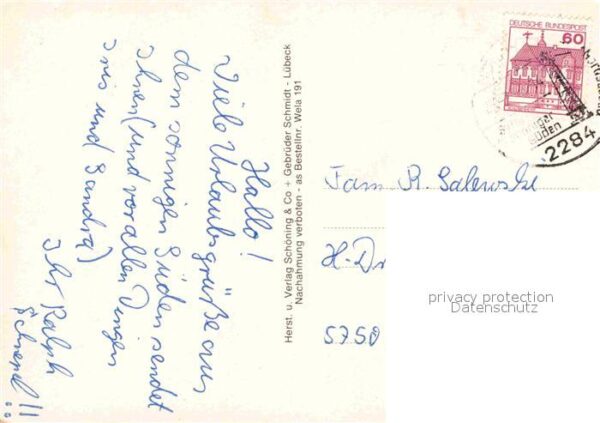 Hallo!
Viele Urlaubsgrüße aus
dem sonnigen Süden sendet
Ihnen (und vor allen Dingen
Iris und Sandra)
Ihr Ralph
!!
Herst. u. Verlag Schöning & Co + Gebrüder Schmidt - Lübeck
Nachahmung verboten - as Bestellnr. Wela 191
DEUTSCHE BUNDESPOST
60
2284
Fam R. Salewske
H-Dr
5750
privacy protection
Datenschutz